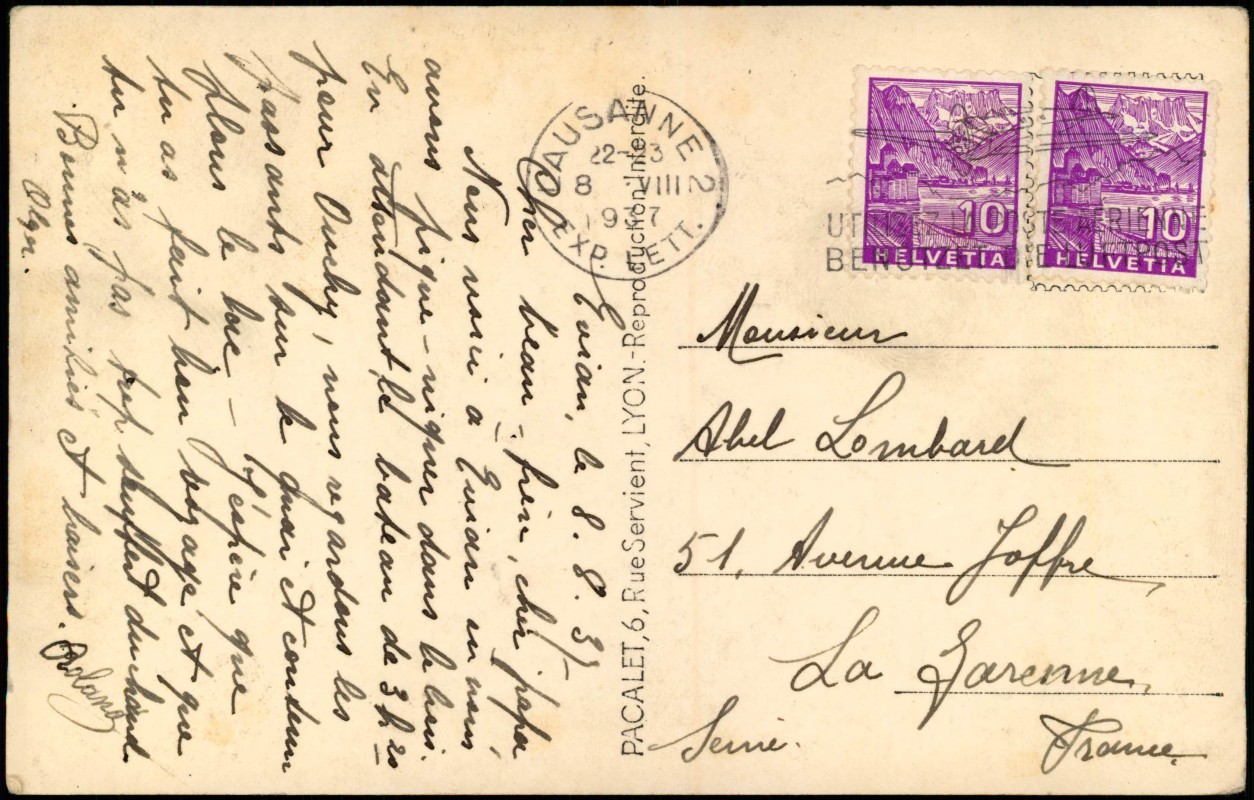 Evian, le 8. 8. 37
Cher beau-frère, cher papa,
Nous voici à Evian où nous
avons pique-niqué dans le bois.
En attendant le bateau de 3 h 20
pour Ouchy, nous regardons les
passants sur le quai et contem
plons le lac – J'espère que
tu as fait bon voyage et que
tu n'as pas trop souffert du chaud.
Bonnes amitiés et baisers. Roland
Olga.
PACALET, 6, Rue Servient, LYON.-Reproduction Interdite.
LAUSANNE 2
22-23
8 VIII
1937
EXP. LETT.
HELVETIA 10
HELVETIA 10
UTILISEZ LA POSTE AERIENNE
BENÜTZET POST
Monsieur
Abel Lombard
51, Avenue Joffre
La Garenne,
Seine.
France